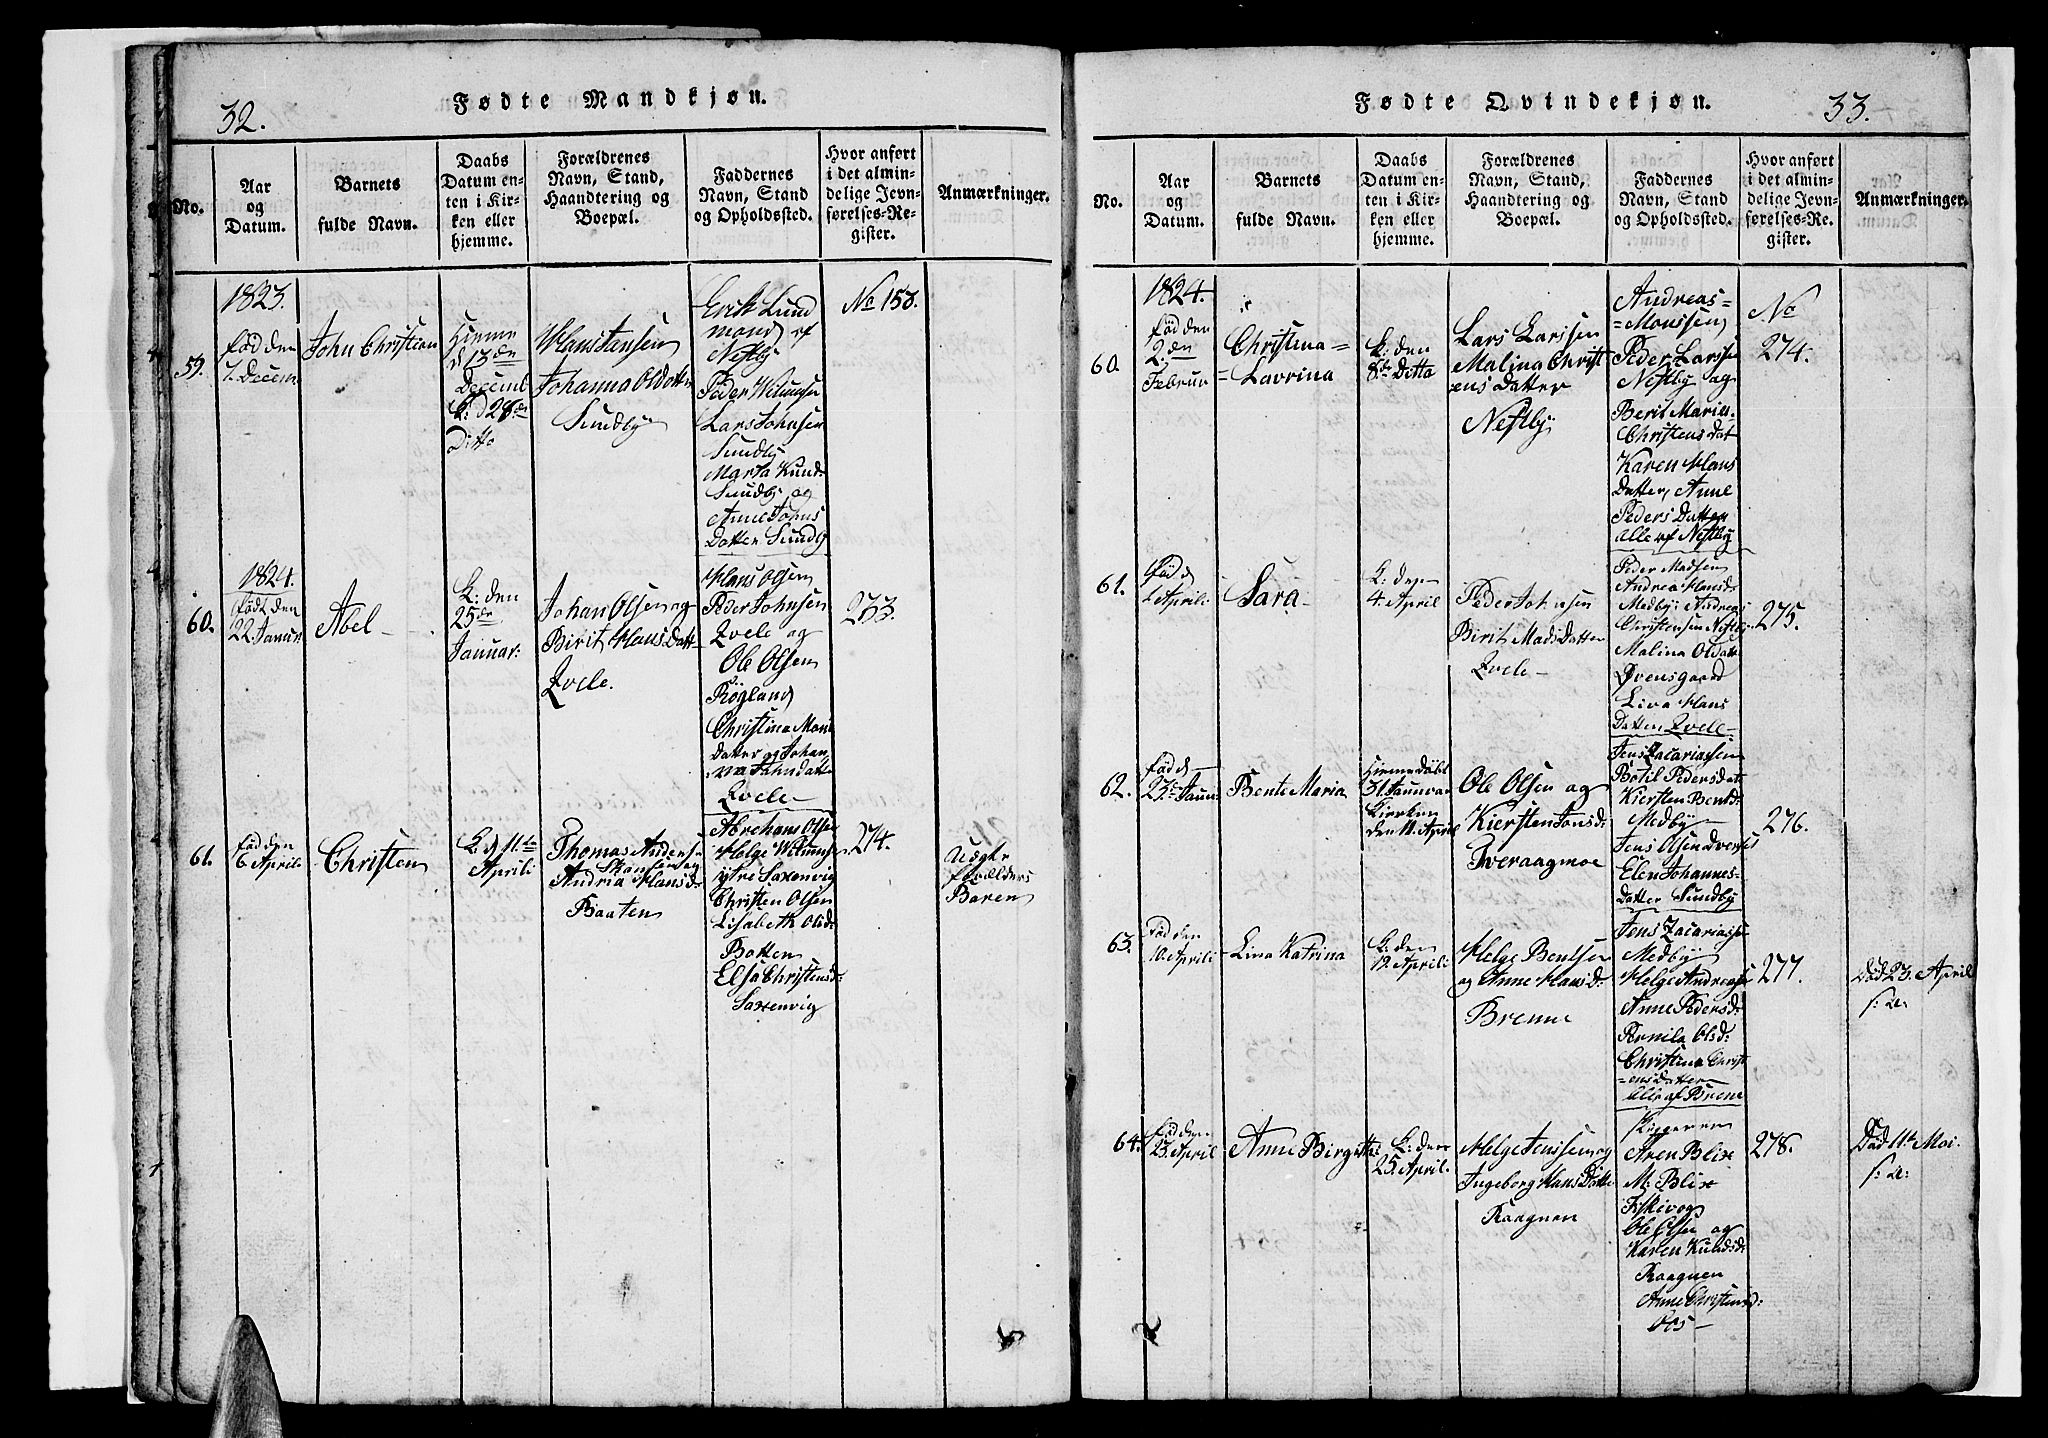 32.
Fødte Mandkjøn.
No.
Aar
og
Datum.
Barnets
fulde Navn.
Daabs
Datum en-
ten i Kir-
ken eller
hjemme.
Forældrenes
Navn, Stand,
Haandtering og
Boepæl.
Faddernes
Navn, Stand
og Opholdssted.
Hvor anført
i det almin-
delige Jevn-
førelses-Re-
gister.
Anmærkninger.
59.
1823.
fød den
7. Decem
John Christian
Hieme
d 13 den
Decemb
K: d 28 de
Ditto
Hans Jansen
Johanna Olsdatter
Sundby
Erik Lund
mond af
Nestby
Peder Wilumsen
Lars Johnsen
Sundby
Marta Knud:
Sundby og
Anne Johns
Datter Sundby
No 158.
60.
1824.
født den
22. Januar
Abel
K: den
25 de
Januar:
Johan Olsen og
Birit Hans Datt
Kvele.
Hans Olsen
Peder Johnsen
Kvele og
Ole Olsen
Røgland
Christina Mons
Datter og Johan
na Johndatt
Kvele
273.
61.
fød den
6 Aprili
Christen
K: d 11te
Aprili
Thomas Anders
Andria Hans d:
Baaten
Abrehans Olsen
Helge Wilumsen
ytre Saxenvig
Christen Olsen
Lisabeth Olsd:
Botten
Elsa Christensd:
Saxenvig
274.
Uægte
Baren
Fødte Qvindekjøn.
33.
No.
Aar
og
Datum.
Barnets
fulde Navn.
Daabs
Datum en-
ten i Kir-
ken eller
hjemme.
Forældrenes
Navn, Stand,
Haandtering og
Boepæl.
Faddernes
Navn, Stand
og Opholdssted.
Hvor anført
i det almin-
delige Jevn-
førelses-Re-
gister.
Anmærkninger.
60.
1824.
fød den
2. den
Februar
Christina
= Lavrina
K: den
8de Ditto
Lars Larssen
Malina Christ
ens Datter
Nestby
Andreas
= Monssen
Peder Larssen
Nestby og
Berit Maria
Christens Dat
Karen Hans
Datter, Anne
Peders Datter
alle af Nestby
No
274.
61.
fød d
1 Aprili
Sara
K: den
4. April
Peder Johnsen
Birit Mads Datter
Kvele
Peder Madsen
Andrea Hansd:
Medby Andreas
Christensen Nestby
Malina Olsdatt
Øvensgaard
Liva Hans
Datter Kvele
275.
62.
fød d
23de Janu
Bente Maria
Hieme Døbt
31. Januar
Kirken
den 11. April
Ole Olsen og
Kiersten Jonsd:
Tveraagmoe
Jens Zacariassen
Botil Pedersdat
Kiersten Bentd:
Medby
Jens Olsen
Elen Johannes-
Datter Sundby
276.
63.
fød den
10. Aprili
Lina Katrina
K: den
19. Aprili
Helge Bentsen
og Anne Hans d:
Brenne
Jens Zacariassen
Medby
Helge Andreasen
Anne Pedersd:
Pernila Olsd:
Christina Christ
= ens Datter
alle af Brene
277.
Død 23. April
s: a:
64.
fød den
23. April
Anne Birgitte
K: den
25. April.
Helge Jenssen og
Ingeborg Hans Datte
Kaagnen
Skipperen
Aren Blix
M: Blix
Fiskivog
Ole Olsen og
Karen Knudsd:
Kaagnen
Anne Christensd:
Oos
278.
Død 11te Mai.
s: a: